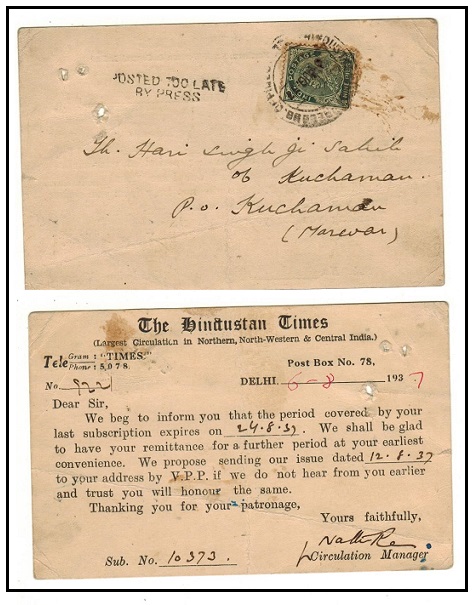 POSTED TOO LATE
BY PRESS
Th. Hari Singh Ji Sahib
of Kuchaman.
P.O. Kuchaman
(Marwar)
The Hindustan Times
(Largest Circulation in Northern, North-Western & Central India.)
Tele Gram : "TIMES."
Phone : 5078
Post Box No. 78,
No. 922
DELHI. 6-8 1937
Dear Sir,
We beg to inform you that the period covered by your
last subscription expires on 24.8.37. We shall be glad
to have your remittance for a further period at your earliest
convenience. We propose sending our issue dated 12.8.37
to your address by V.P.P. if we do not hear from you earlier
and trust you will honour the same.
Thanking you for your patronage,
Yours faithfully,
Circulation Manager
Sub. No. 10373.